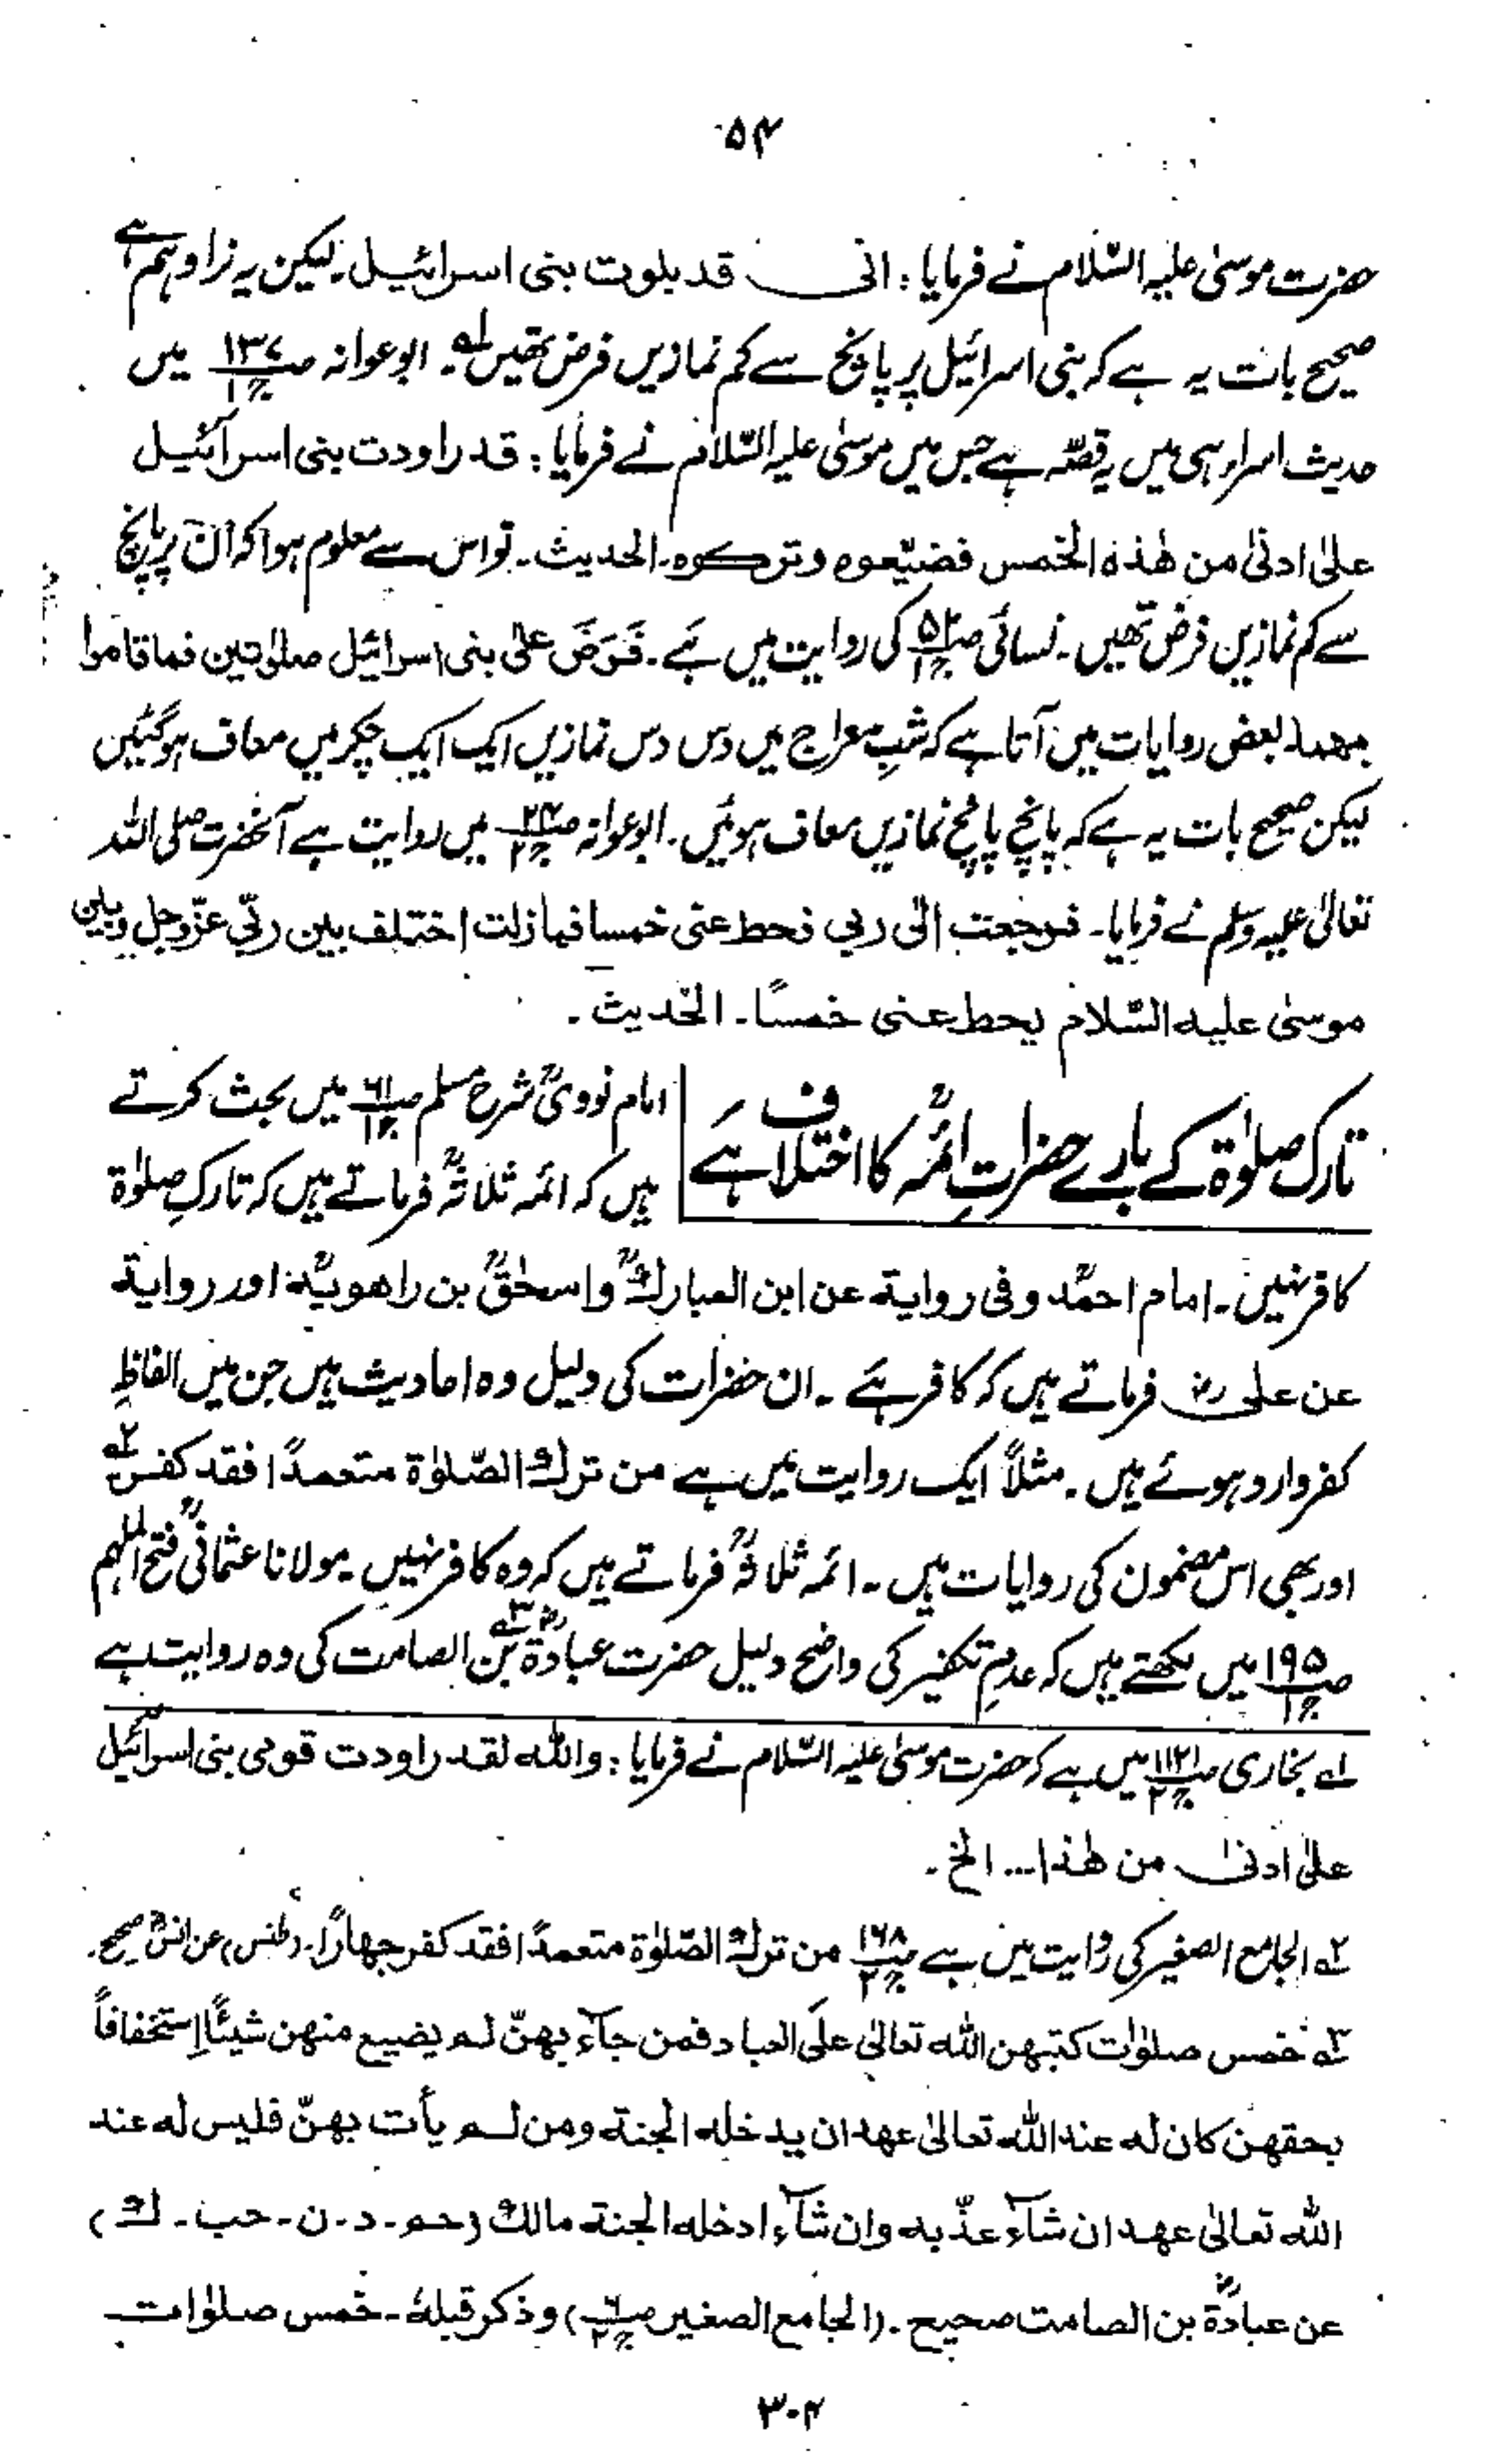 ۵۴
حضرت موسیٰ علیہ السّلام نے فرمایا : انی قد بلوت بنی اسرائیل۔ لیکن یہ نرا وہم ہے
صحیح بات یہ ہے کہ بنی اسرائیل پر پانچ سے کم نمازیں فرض تھیں لہ۔ ابوعوانہ صـ۱۳۷ ج۱ میں
حدیث اسراء ہی میں یہ قصّہ ہے جس میں موسیٰ علیہ السّلام نے فرمایا : قد راودت بنی اسرآئیل
علیٰ ادنیٰ من ھٰذہ الخمس فضیّعوہ وترکوہ۔ الحدیث۔ تو اس سے معلوم ہوا کہ ان پر پانچ
سے کم نمازیں فرض تھیں۔ نسائی صـ۵۲ ج۱ کی روایت میں ہے۔ فَرَضَ علیٰ بنی اسرائیل صلوٰتین فما قاموا
بھما۔ بعض روایات میں آتا ہے کہ شبِ معراج میں دس دس نمازیں ایک ایک چکر میں معاف ہوگئیں
لیکن صحیح بات یہ ہے کہ پانچ پانچ نمازیں معاف ہوئیں۔ ابوعوانہ میں روایت ہے آنحضرت صلی اللہ
تعالیٰ علیہ وسلم نے فرمایا۔ فرجعت الیٰ ربی فحط عنی خمسا فما زلت اختلف بین ربّی عزّوجل وبین
موسیٰ علیہ السّلام یحط عنی خمسًا۔ الحدیث۔
تارک صلوٰۃ کے بارے حضراتِ ائمہؒ کا اختلاف ہے
امام نوویؒ شرح مسلم صـ۶۱ ج۱ میں بحث کرتے
ہیں کہ ائمہ ثلاثہؒ فرماتے ہیں کہ تارکِ صلوٰۃ
کافر نہیں۔ امام احمدؒ وفی روایۃ عن ابن المبارکؒ واسحٰقؒ بن راھویہؒ اور روایۃ
عن علی رضہ فرماتے ہیں کہ کافر ہے۔ ان حضرات کی دلیل وہ احادیث ہیں جن میں الفاظِ
کفر وارد ہوئے ہیں۔ مثلاً ایک روایت میں ہے من ترک الصّلوٰۃ متعمدًا فقد کفر ۲ہ
اور بھی اس مضمون کی روایات ہیں۔ ائمہ ثلاثہؒ فرماتے ہیں کہ وہ کافر نہیں۔ مولانا عثمانیؒ فتح الملہم
صـ۱۹۵ ج۱ میں لکھتے ہیں کہ عدمِ تکفیر کی واضح دلیل حضرت عبادۃؓ ۳ہ بن الصامت کی وہ روایت ہے
لہ بخاری صـ۱۱۲۱ ج۲ میں ہے کہ حضرت موسیٰ علیہ السّلام نے فرمایا : واللہ لقد راودت قومی بنی اسرائیل
علیٰ ادنیٰ من ھٰذا... الخ۔
۲ہ الجامع الصغیر کی روایت میں ہے صـ۱۶۸ ج۲ من ترک الصّلوٰۃ متعمدًا فقد کفر جھارًا۔ (طس) عن انسؓ صحیح۔
۳ہ خمس صلوٰت کتبھن اللہ تعالیٰ علی العباد فمن جآء بھنّ لم یضیع منھن شیئًا اِستخفافاً
بحقھن کان لہ عند اللہ تعالیٰ عھد ان یدخلہ الجنۃ ومن لم یأت بھنّ فلیس لہ عند
اللہ تعالیٰ عھد ان شآء عذّبہ وان شآء ادخلہ الجنۃ مالک (حم۔ د۔ ن۔ حب۔ ک)
عن عبادۃؓ بن الصامت صحیح۔ (الجامع الصغیر صـ۶ ج۲) وذکر قبلہٗ۔ خمس صلوٰات
۳۰۴